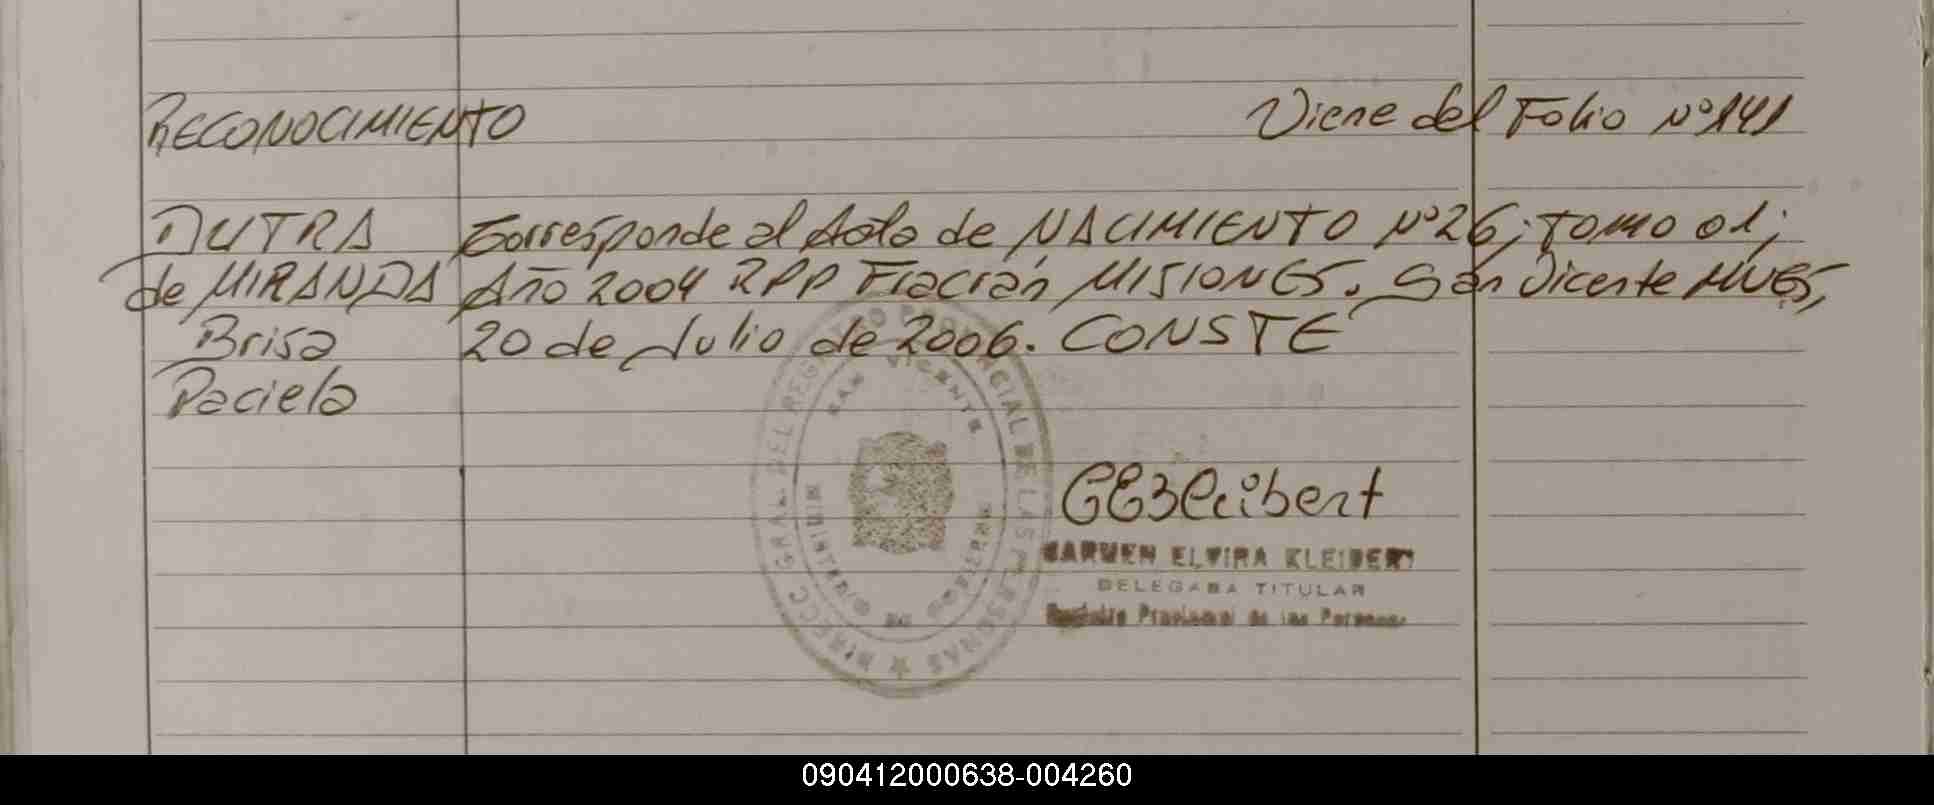 RECONOCIMIENTO
Viene del Folio Nº 141
DUTRA
de MIRANDA
Brisa
Daciela
Corresponde al Acta de NACIMIENTO Nº 26; TOMO 01;
Año 2004 RPP Fracrán MISIONES. San Vicente MNES,
20 de Julio de 2006. CONSTE
DIRECC GRAL DEL REGISTRO PROVINCIAL DE LAS PERSONAS
SAN VICENTE
MINISTERIO DE GOBIERNO
CEKleibert
CARMEN ELVIRA KLEIBERT
DELEGADA TITULAR
Registro Provincial de las Personas
090412000638-004260